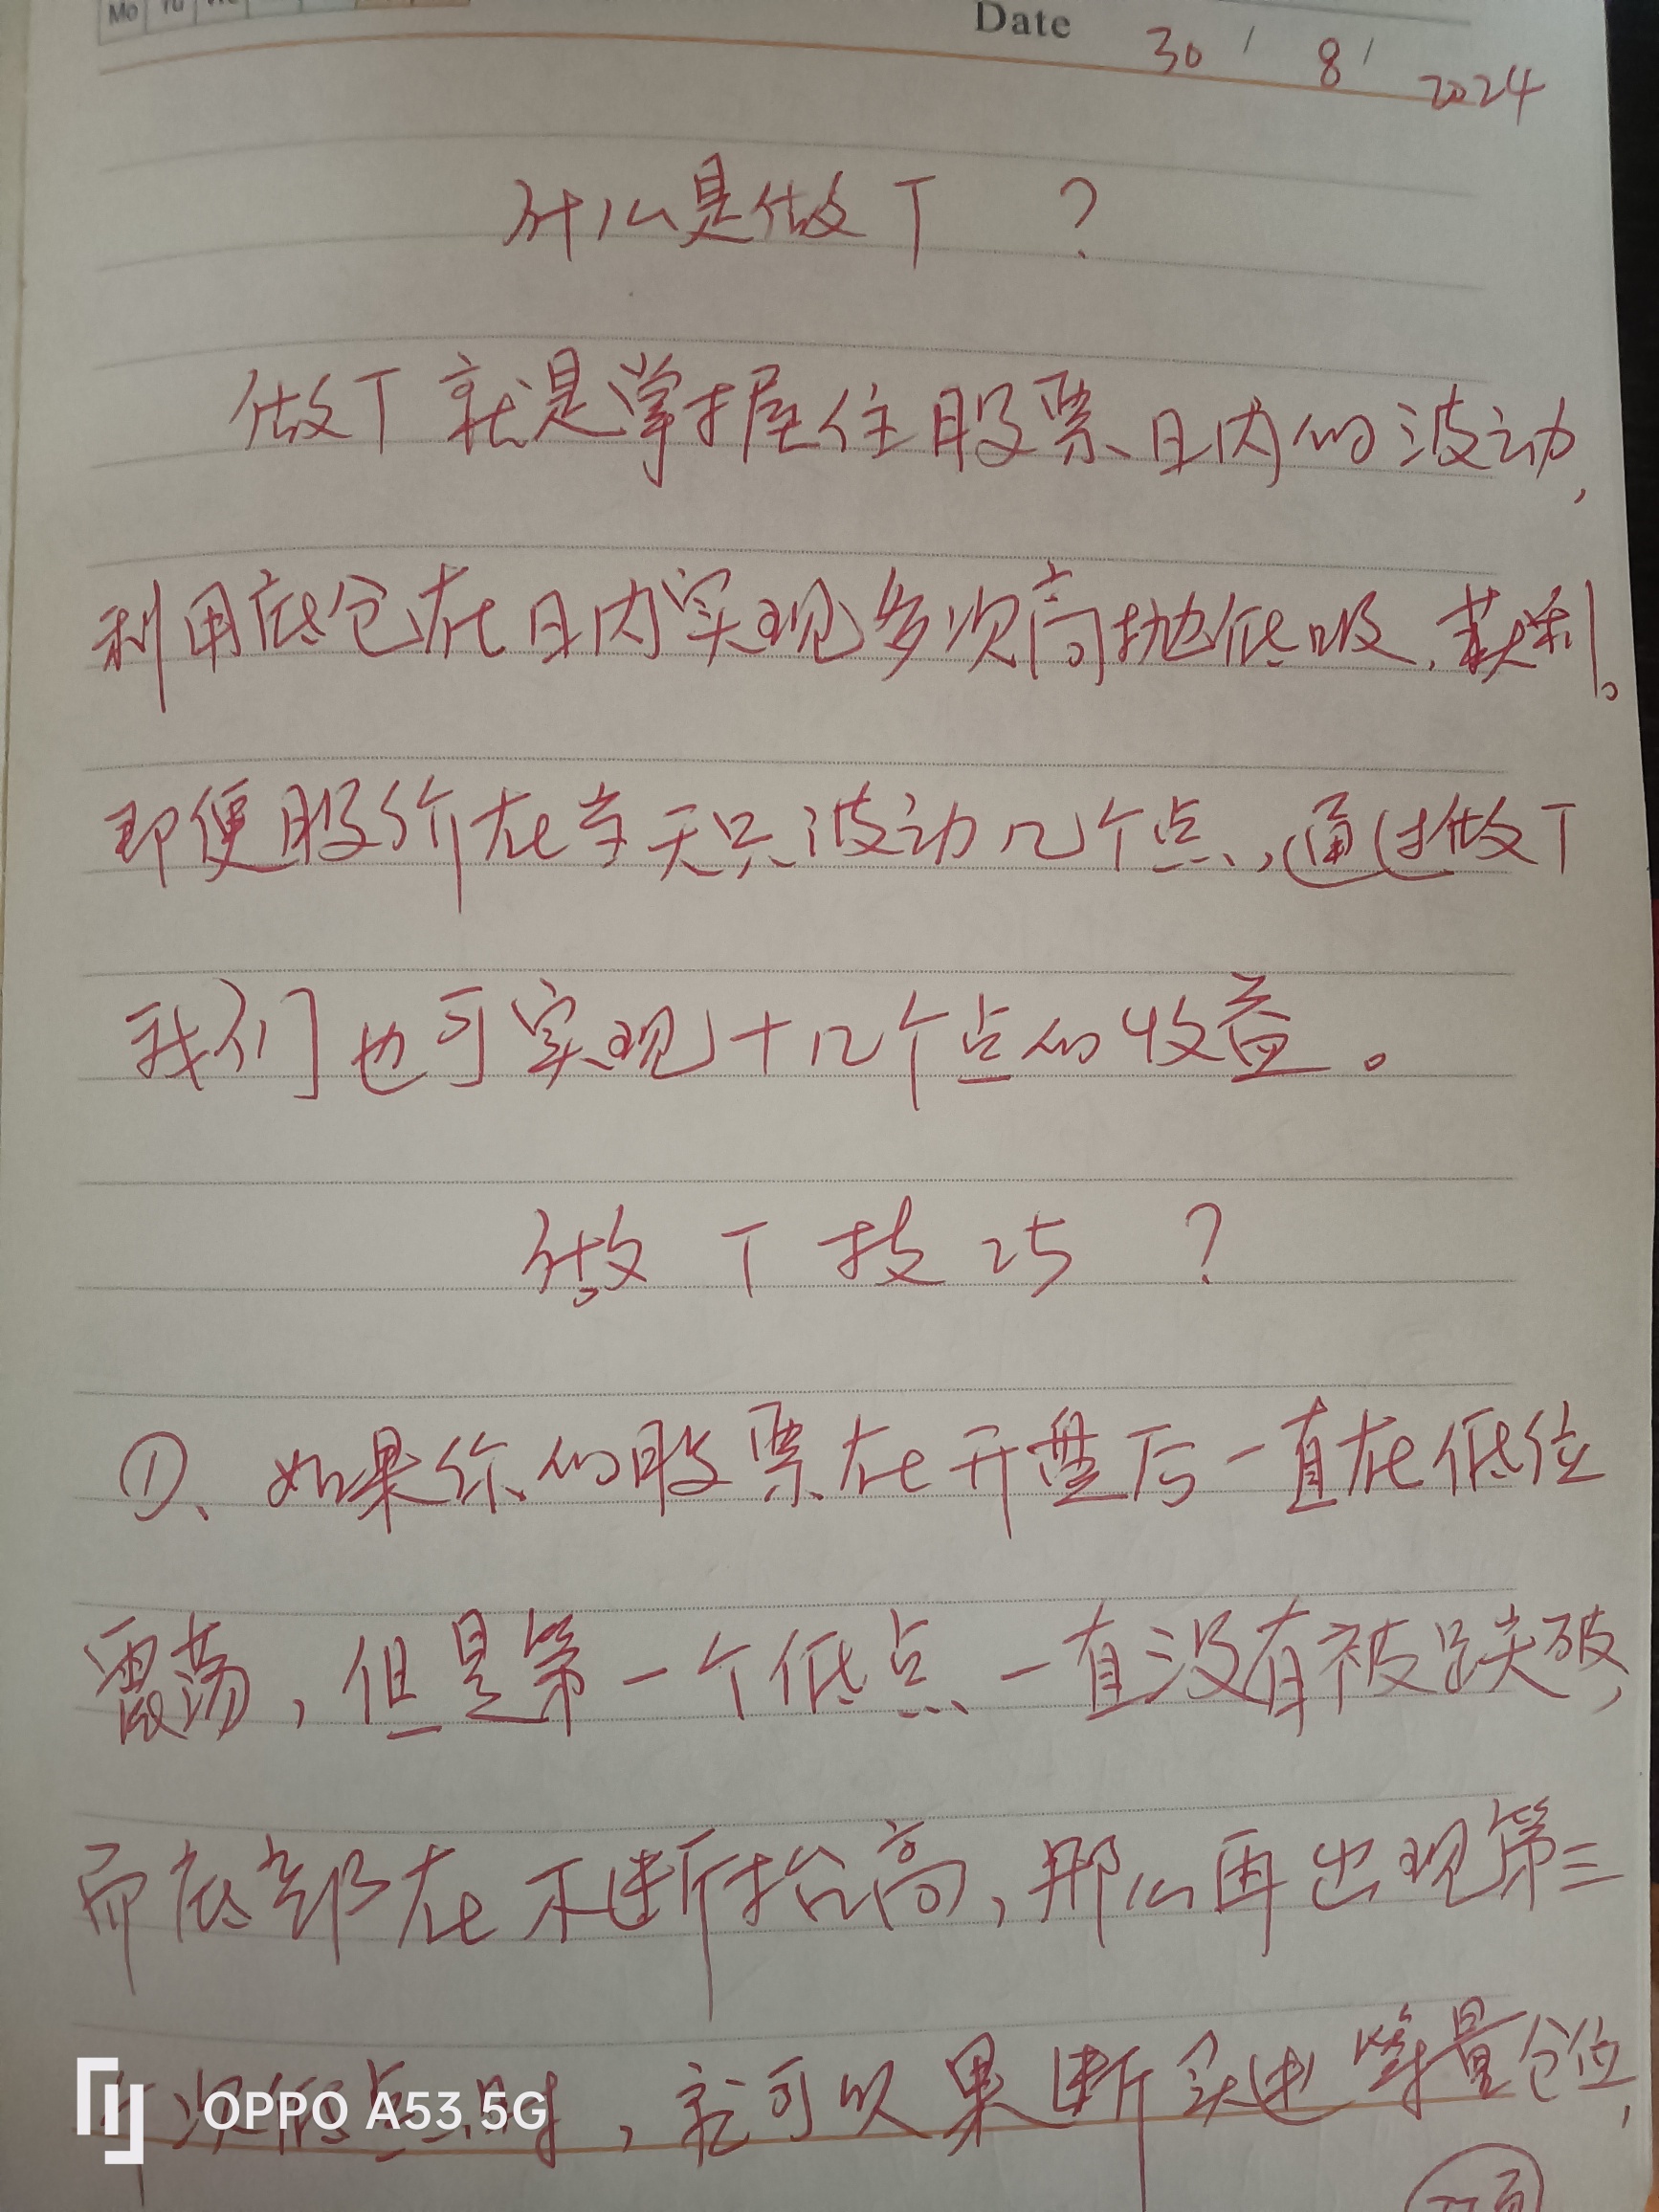 Mo Tu
Date 30 / 8 / 2024
什么是做T ?
做T就是掌握住股票日内的波动,
利用底仓在日内实现多次高抛低吸,获利。
即便股价在当天只波动几个点,通过做T
我们也可实现十几个点的收益。
做T技巧 ?
①、如果你的股票在开盘后一直在低位
震荡,但是第一个低点一直没有被跌破,
而底部在不断抬高,那么再出现第三
次低点时,就可以果断买进等量仓位,
OPPO A53 5G